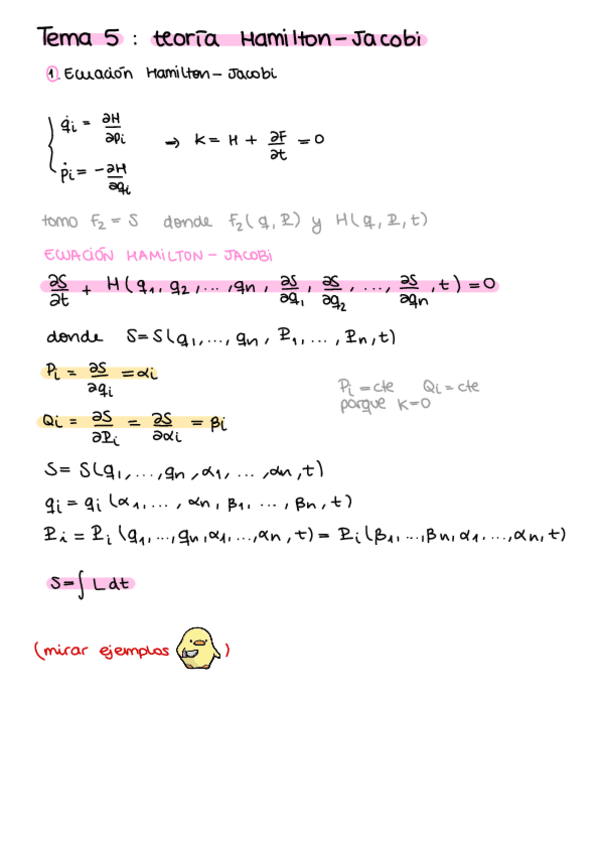 Tema 5 : teoría Hamilton-Jacobi
1. Ecuación Hamilton-Jacobi
{ q̇i = ∂H/∂pi
ṗi = -∂H/∂qi → K = H + ∂F/∂t = 0
tomo F₂ = S donde F₂(q, P) y H(q, P, t)
ECUACIÓN HAMILTON-JACOBI
∂S/∂t + H(q₁, q₂, ..., qn, ∂S/∂q₁, ∂S/∂q₂, ..., ∂S/∂qn, t) = 0
donde S = S(q₁, ..., qn, P₁, ..., Pn, t)
Pi = ∂S/∂qi = αi
Pi = cte Qi = cte
porque K=0
Qi = ∂S/∂Pi = ∂S/∂αi = βi
S = S(q₁, ..., qn, α₁, ..., αn, t)
qi = qi (α₁, ..., αn, β₁, ..., βn, t)
Pi = Pi (q₁, ..., qn, α₁, ..., αn, t) = Pi(β₁, ..., βn, α₁, ..., αn, t)
S = ∫ L dt
(mirar ejemplos )